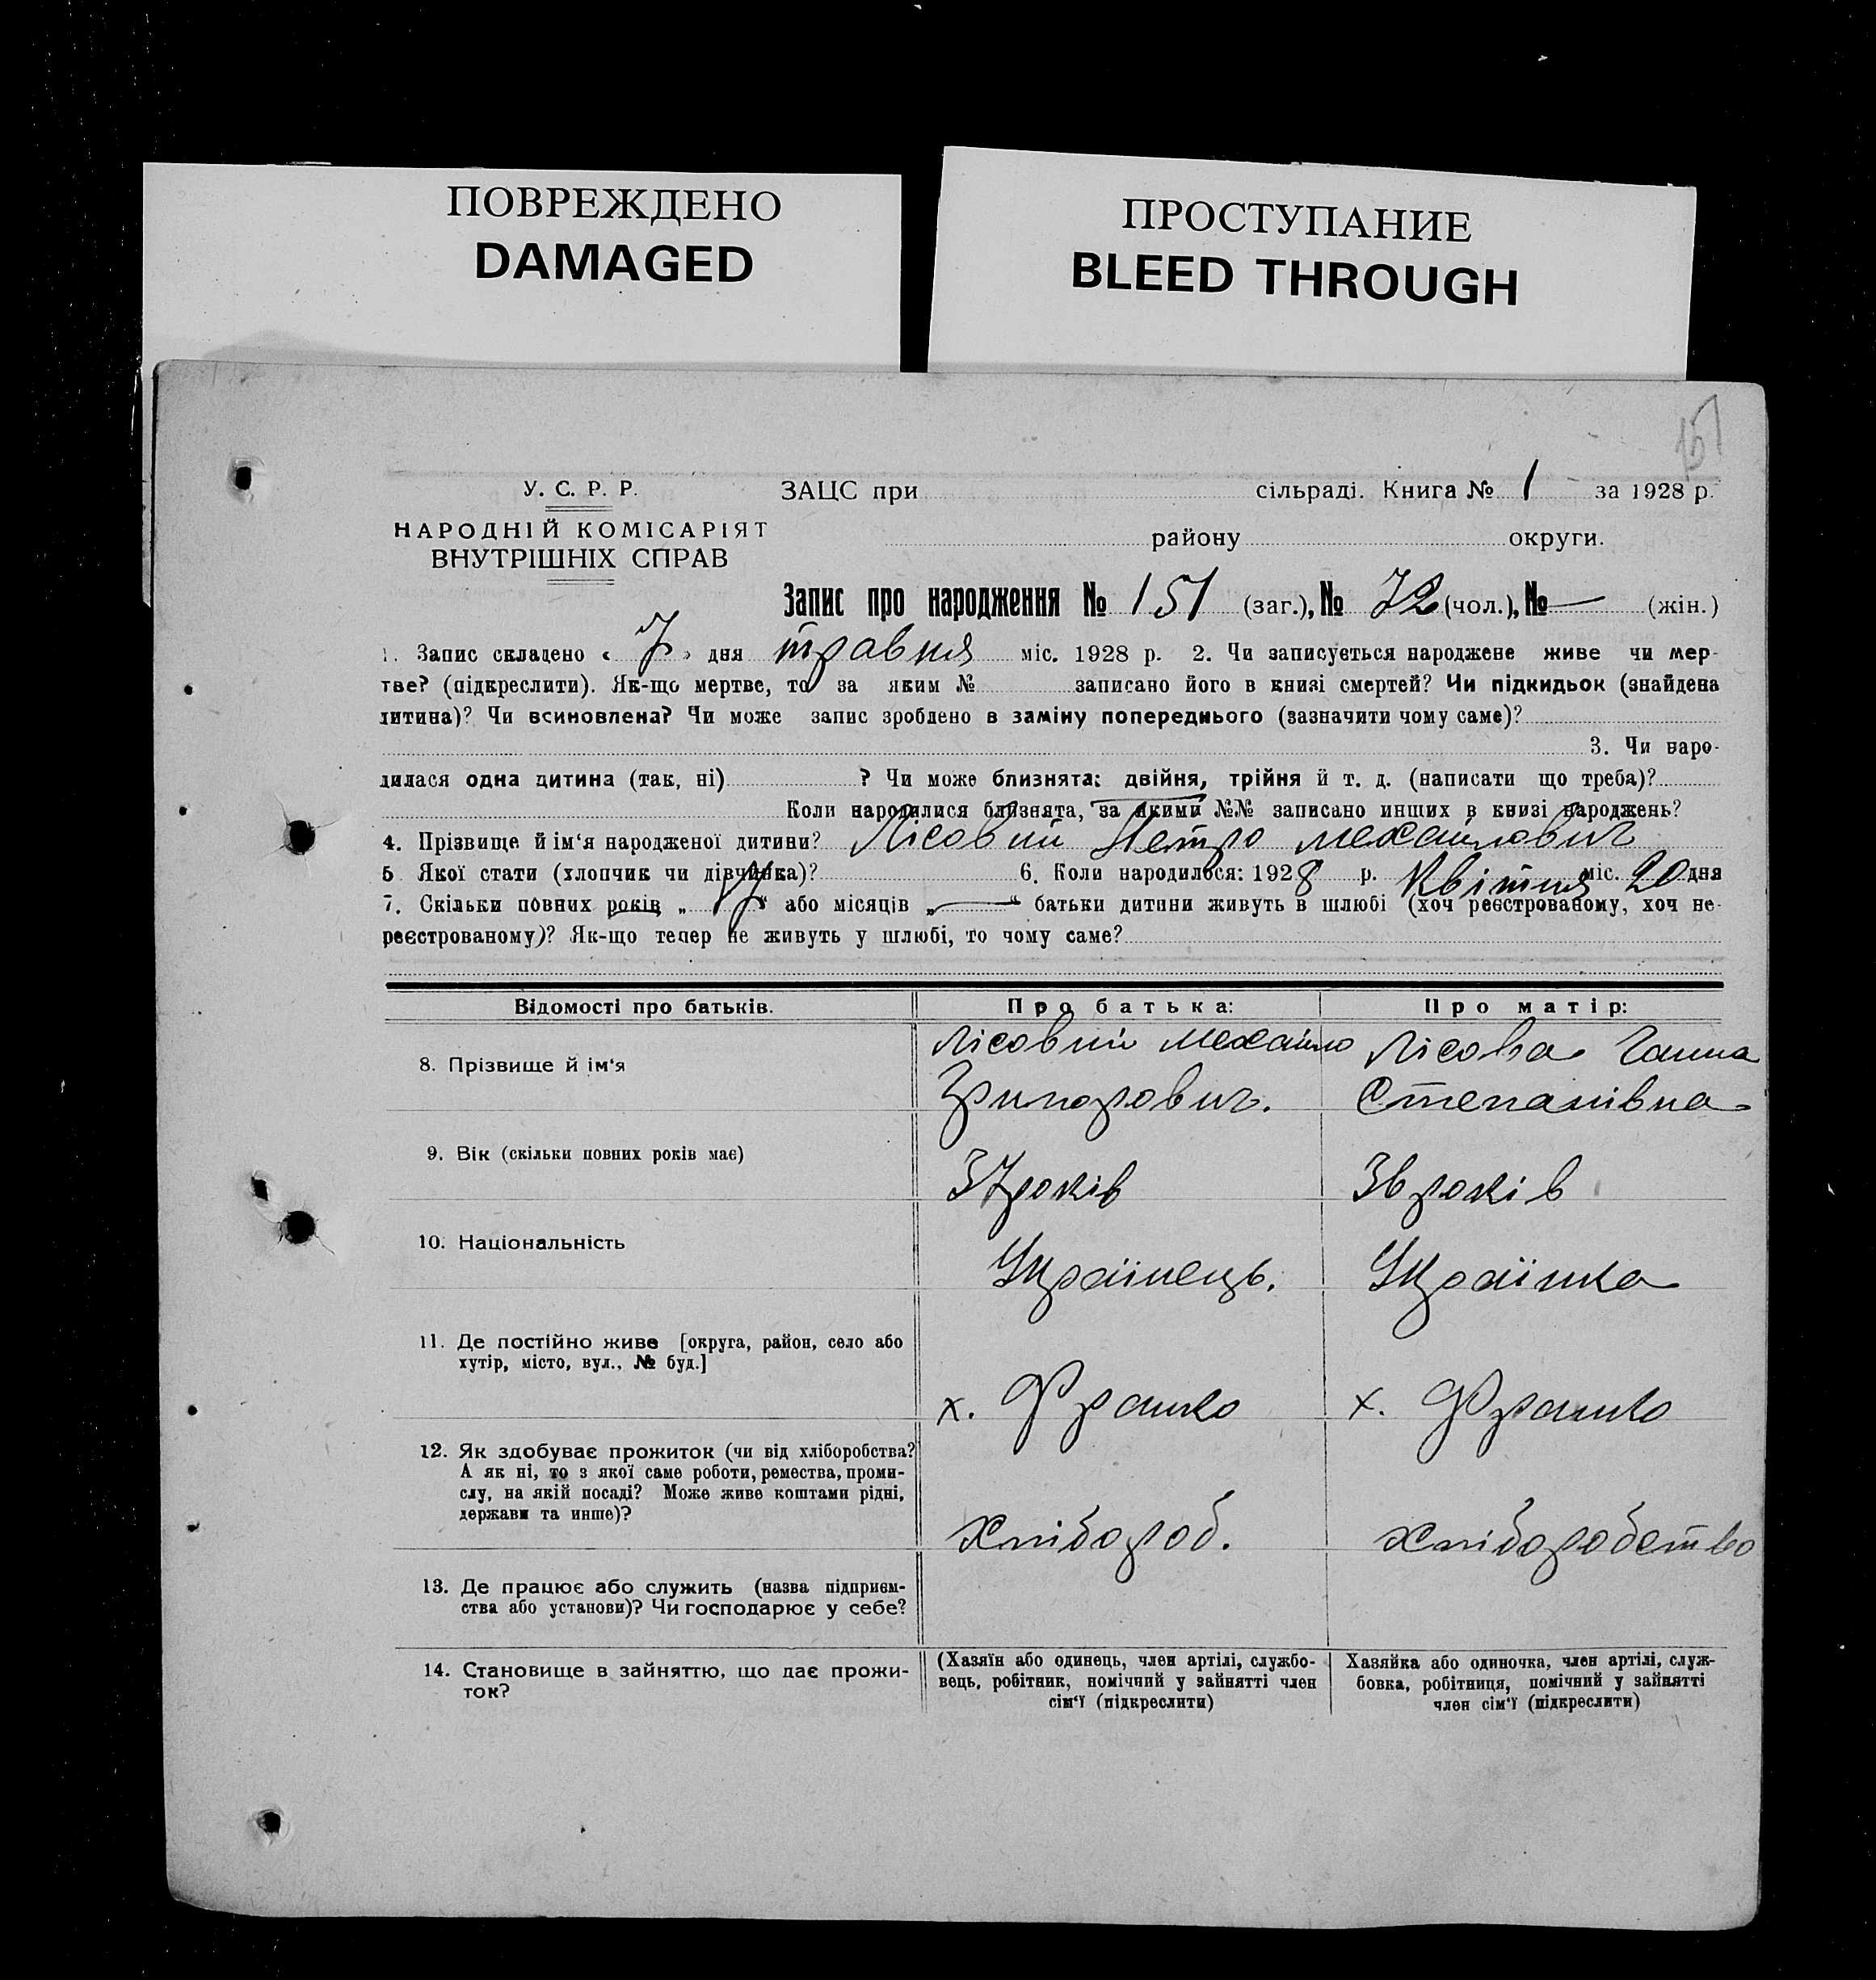 ПОВРЕЖДЕНО
DAMAGED
ПРОСТУПАНИЕ
BLEED THROUGH
151
У. С. Р. Р.
НАРОДНІЙ КОМІСАРІЯТ
ВНУТРІШНІХ СПРАВ
ЗАЦС при сільраді. Книга № 1 за 1928 р.
району округи.
Запис про народження № 151 (заг.), № 72 (чол.), № — (жін.)
1. Запис складено « 7 » дня травня міс. 1928 р. 2. Чи записується народжене живе чи мер-
тве? (підкреслити). Як-що мертве, то за яким № записано його в книзі смертей? Чи підкидьок (знайдена
дитина)? Чи всиновлена? Чи може запис зроблено в заміну попереднього (зазначити чому саме)?
3. Чи наро-
дилася одна дитина (так, ні) ? Чи може близнята: двійня, трійня й т. д. (написати що треба)?
Коли народилися близнята, за якими №№ записано инших в книзі народжень?
4. Прізвище й ім‘я народженої дитини? Лісовий Петро Механлович
5 Якої стати (хлопчик чи дівчинка)? 6. Коли народилося: 1928 р. Квітня міс. 20 дня
7. Скільки повних років „ 17 “ або місяців „ — “ батьки дитини живуть в шлюбі (хоч реєстрованому, хоч не-
реєстрованому)? Як-що тепер не живуть у шлюбі, то чому саме?
Відомості про батьків.
Про батька:
Про матір:
8. Прізвище й ім‘я
Лісовий Механло
Григорович.
Лісова Ганна
Степанівна
9. Вік (скільки повних років має)
37 років
36 років
10. Національність
Українець.
Українка
11. Де постійно живе [округа, район, село або
хутір, місто, вул., № буд.]
х. Франко
х. Франко
12. Як здобуває прожиток (чи від хліборобства?
А як ні, то з якої саме роботи, ремества, проми-
слу, на якій посаді? Може живе коштами рідні,
держави та инше)?
Хлібороб.
хліборобство
13. Де працює або служить (назва підприєм-
ства або установи)? Чи господарює у себе?
14. Становище в зайняттю, що дає прожи-
ток?
(Хазяїн або одинець, член артілі, службо-
вець, робітник, помічний у зайнятті член
сім‘ї (підкреслити)
Хазяйка або одиночка, член артілі, служ-
бовка, робітниця, помічний у зайнятті
член сім‘ї (підкреслити)